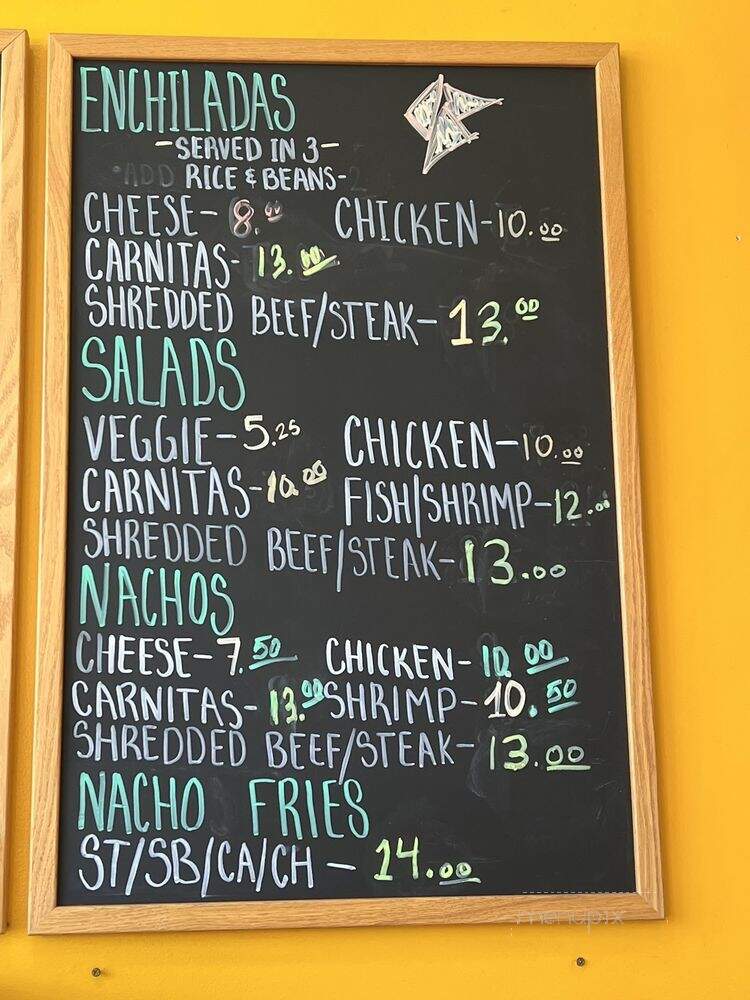 ENCHILADAS
-SERVED IN 3-
ADD RICE & BEANS-2
CHEESE- 8.00 CHICKEN-10.00
CARNITAS- 13.00
SHREDDED BEEF/STEAK- 13.00
SALADS
VEGGIE-5.25 CHICKEN-10.00
CARNITAS-10.00 FISH/SHRIMP-12.00
SHREDDED BEEF/STEAK-13.00
NACHOS
CHEESE-7.50 CHICKEN-10.00
CARNITAS-13.00 SHRIMP-10.50
SHREDDED BEEF/STEAK-13.00
NACHO FRIES
ST/SB/CA/CH - 14.00
menupix